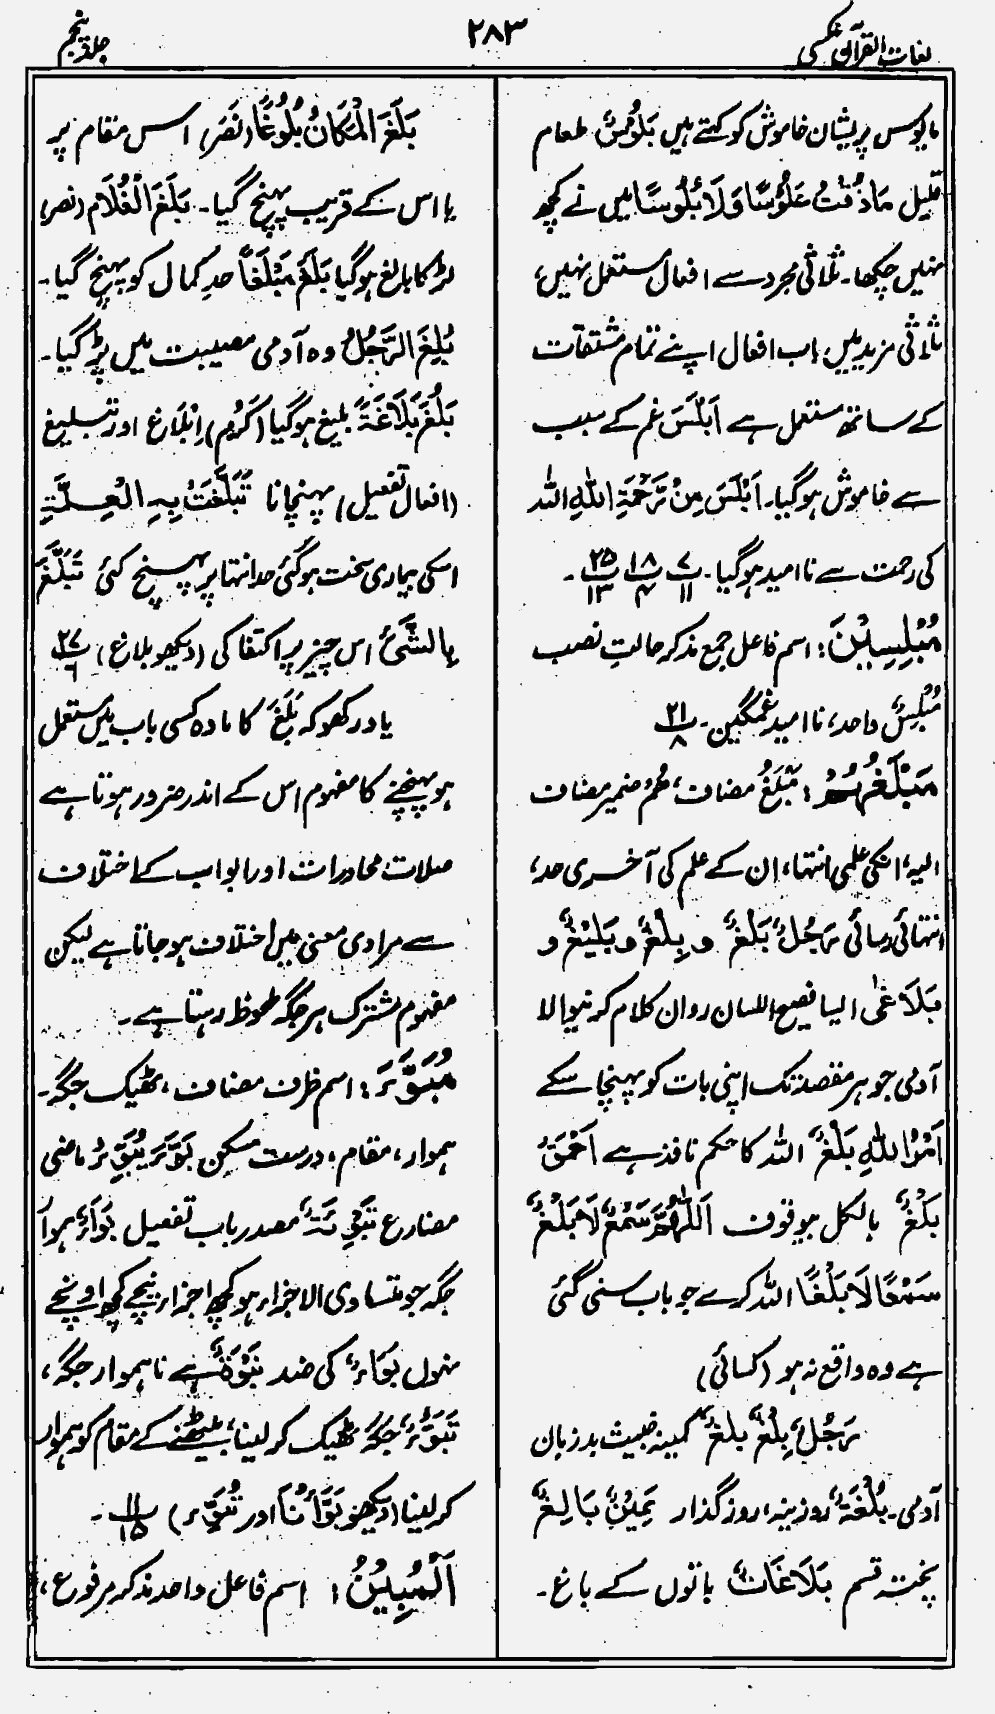 لغات القرآن عکسی
۲۸۳
جلد پنجم
مایوس پریشان خاموش کو کہتے ہیں بَلُوسٌ طعام
قلیل مَاذُقْتُ عَلُوْسًا وَلَا بُلُوسًا میں نے کچھ
نہیں چکھا۔ ثلاثی مجرد سے افعال مستعمل نہیں،
ثلاثی مزید میں باب افعال اپنے تمام مشتقات
کے ساتھ مستعمل ہے اَبْلَسَ غم کے سبب
سے خاموش ہو گیا۔ اَبْلَسَ مِنْ رَّحْمَۃِ اللہِ اللہ
کی رحمت سے نا امید ہو گیا۔ پ۷/۱۱ پ۱۸/۴ پ۲۵/۱۳ ۔
مُبْلِسِیْنَ: اسم فاعل جمع مذکر حالتِ نصب
مُبْلِسٌ واحد، نا امید غمگین۔ پ۲۱/۸
مَبْلَغُہُمْ: مَبْلَغُ مضاف، ھُمْ ضمیر مضاف
الیہ، انکی علمی انتہا، ان کے علم کی آخری حد،
انتہائی رسائی رَجُلٌ بَلْغٌ و بِلْغٌ و بَلِیْغٌ و
بَلَاغٰی ایسا فصیح اللسان رواں کلام کرنیوالا
آدمی جو ہر مقصد تک اپنی بات کو پہنچا سکے
اَمْرُ اللہِ بَلْغٌ اللہ کا حکم نافذ ہے اَحْمَقُ
بَلْغٌ بالکل بیوقوف اَللّٰھُمَّ سَمْعٌ لَا بَلْغٌ
سَمْعًا لَا بَلْغًا اللہ کرے جو بات سنی گئی
ہے وہ واقع نہ ہو (کسائی)
رَجُلٌ بِلْغٌ بلغٌ کمینہ خبیث بدزبان
آدمی۔ بُلْغَۃٌ روزینہ، روز گذار یَمِیْنٌ بَالِغٌ
پختہ قسم بَلَاغَاتٌ باتوں کے باغ۔
بَلَغَ الْمَکَانُ بُلُوغًا (نَصَرَ) اس مقام پر
یا اس کے قریب پہنچ گیا۔ بَلَغَ الْغُلَام (نصر)
لڑکا بالغ ہو گیا بَلَغَ مَبْلَغًا حدِ کمال کو پہنچ گیا۔
بُلِغَ الرَّجُلُ وہ آدمی مصیبت میں پڑ گیا۔
بَلُغَ بَلَاغَۃً بلیغ ہو گیا (کَرُمَ) اِبْلَاغ اور تبلیغ
(افعال تفعیل) پہنچانا تَبَلَّغَتْ بِہِ الْعِلَّۃِ
اسکی بیماری سخت ہو گئی حد انتہا پر پہنچ گئی تَبَلَّغَ
بِالشَّیْئِ اس چیز پر اکتفا کی (دیکھو بلاغ) پ۲۷/۶
یاد رکھو کہ بَلَغَ کا مادہ کسی باب میں مستعمل
ہو پہنچنے کا مفہوم اس کے اندر ضرور ہوتا ہے
صلات محاورات اور ابواب کے اختلاف
سے مرادی معنی میں اختلاف ہو جاتا ہے لیکن
مفہوم مشترک ہر جگہ ملحوظ رہتا ہے۔
مُبَوَّءَ: اسم ظرف مضاف، ٹھیک جگہ۔
ہموار، مقام، درست مسکن بَوَّءَ یُبَوِّءُ ماضی
مضارع تَبْوِئَۃٌ مصدر باب تفعیل بَوَاءٌ ہموار
جگہ جو متساوی الاجزاء ہو کچھ اجزاء نیچے کچھ اونچے
نہوں بَوَاءٌ کی ضد نَبْوَۃٌ ہے ناہموار جگہ،
تَبَوُّءٌ جگہ ٹھیک کر لینا، بیٹھنے کے مقام کو ہموار
کر لینا (دیکھو بَوَّأْنَا اور تُبَوِّء) پ۱۱/۱۵ ۔
اَلْمُبِیْنُ: اسم فاعل واحد مذکر مرفوع،